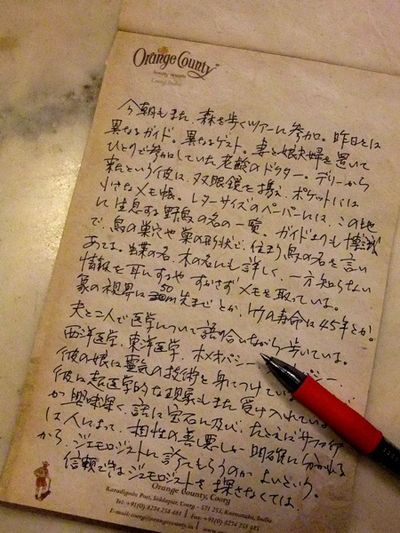 Orange County
今朝もまた、森を歩くツアーに参加。昨日とは
異なるガイド。異なるゲスト。妻と娘夫婦を置いて
ひとりで参加していた老齢のドクター。デリーから
来たという彼は、双眼鏡を携え、ポケットには
小さなメモ帳。レターサイズのペーパーには、この地
に生息する野鳥の名の一覧。ガイドよりも博識
で、鳥の巣穴や巣の形状で、住まう鳥の名を言い
あてる。蝶の名、木の名にも詳しく、一方知らない
情報を耳にするや、すかさずメモを取っている。
象の視界は50m先までとか、竹の寿命は45年とか。
夫と二人で医学について語り合いながら歩いている。
西洋医学、東洋医学、ホメオパシー
彼の娘は霊気の技術を身につけてい
彼は超医学的な現象もまた受け入れている
が興味深く、話は宝石に及び、たとえばサファイヤ
は人によって、相性の善し悪しが明確に分かれる
から、ジェモロジストに診てもらうのがよいという。
信頼できるジェモロジストを探さなくては。
Orange County, Coorg
Karadigodu Post, Siddapur, Coorg - 571 253, Karnataka, India
Tel: +91 (0) 8274 258 481 | Fax: +91 (0) 8274 258 485